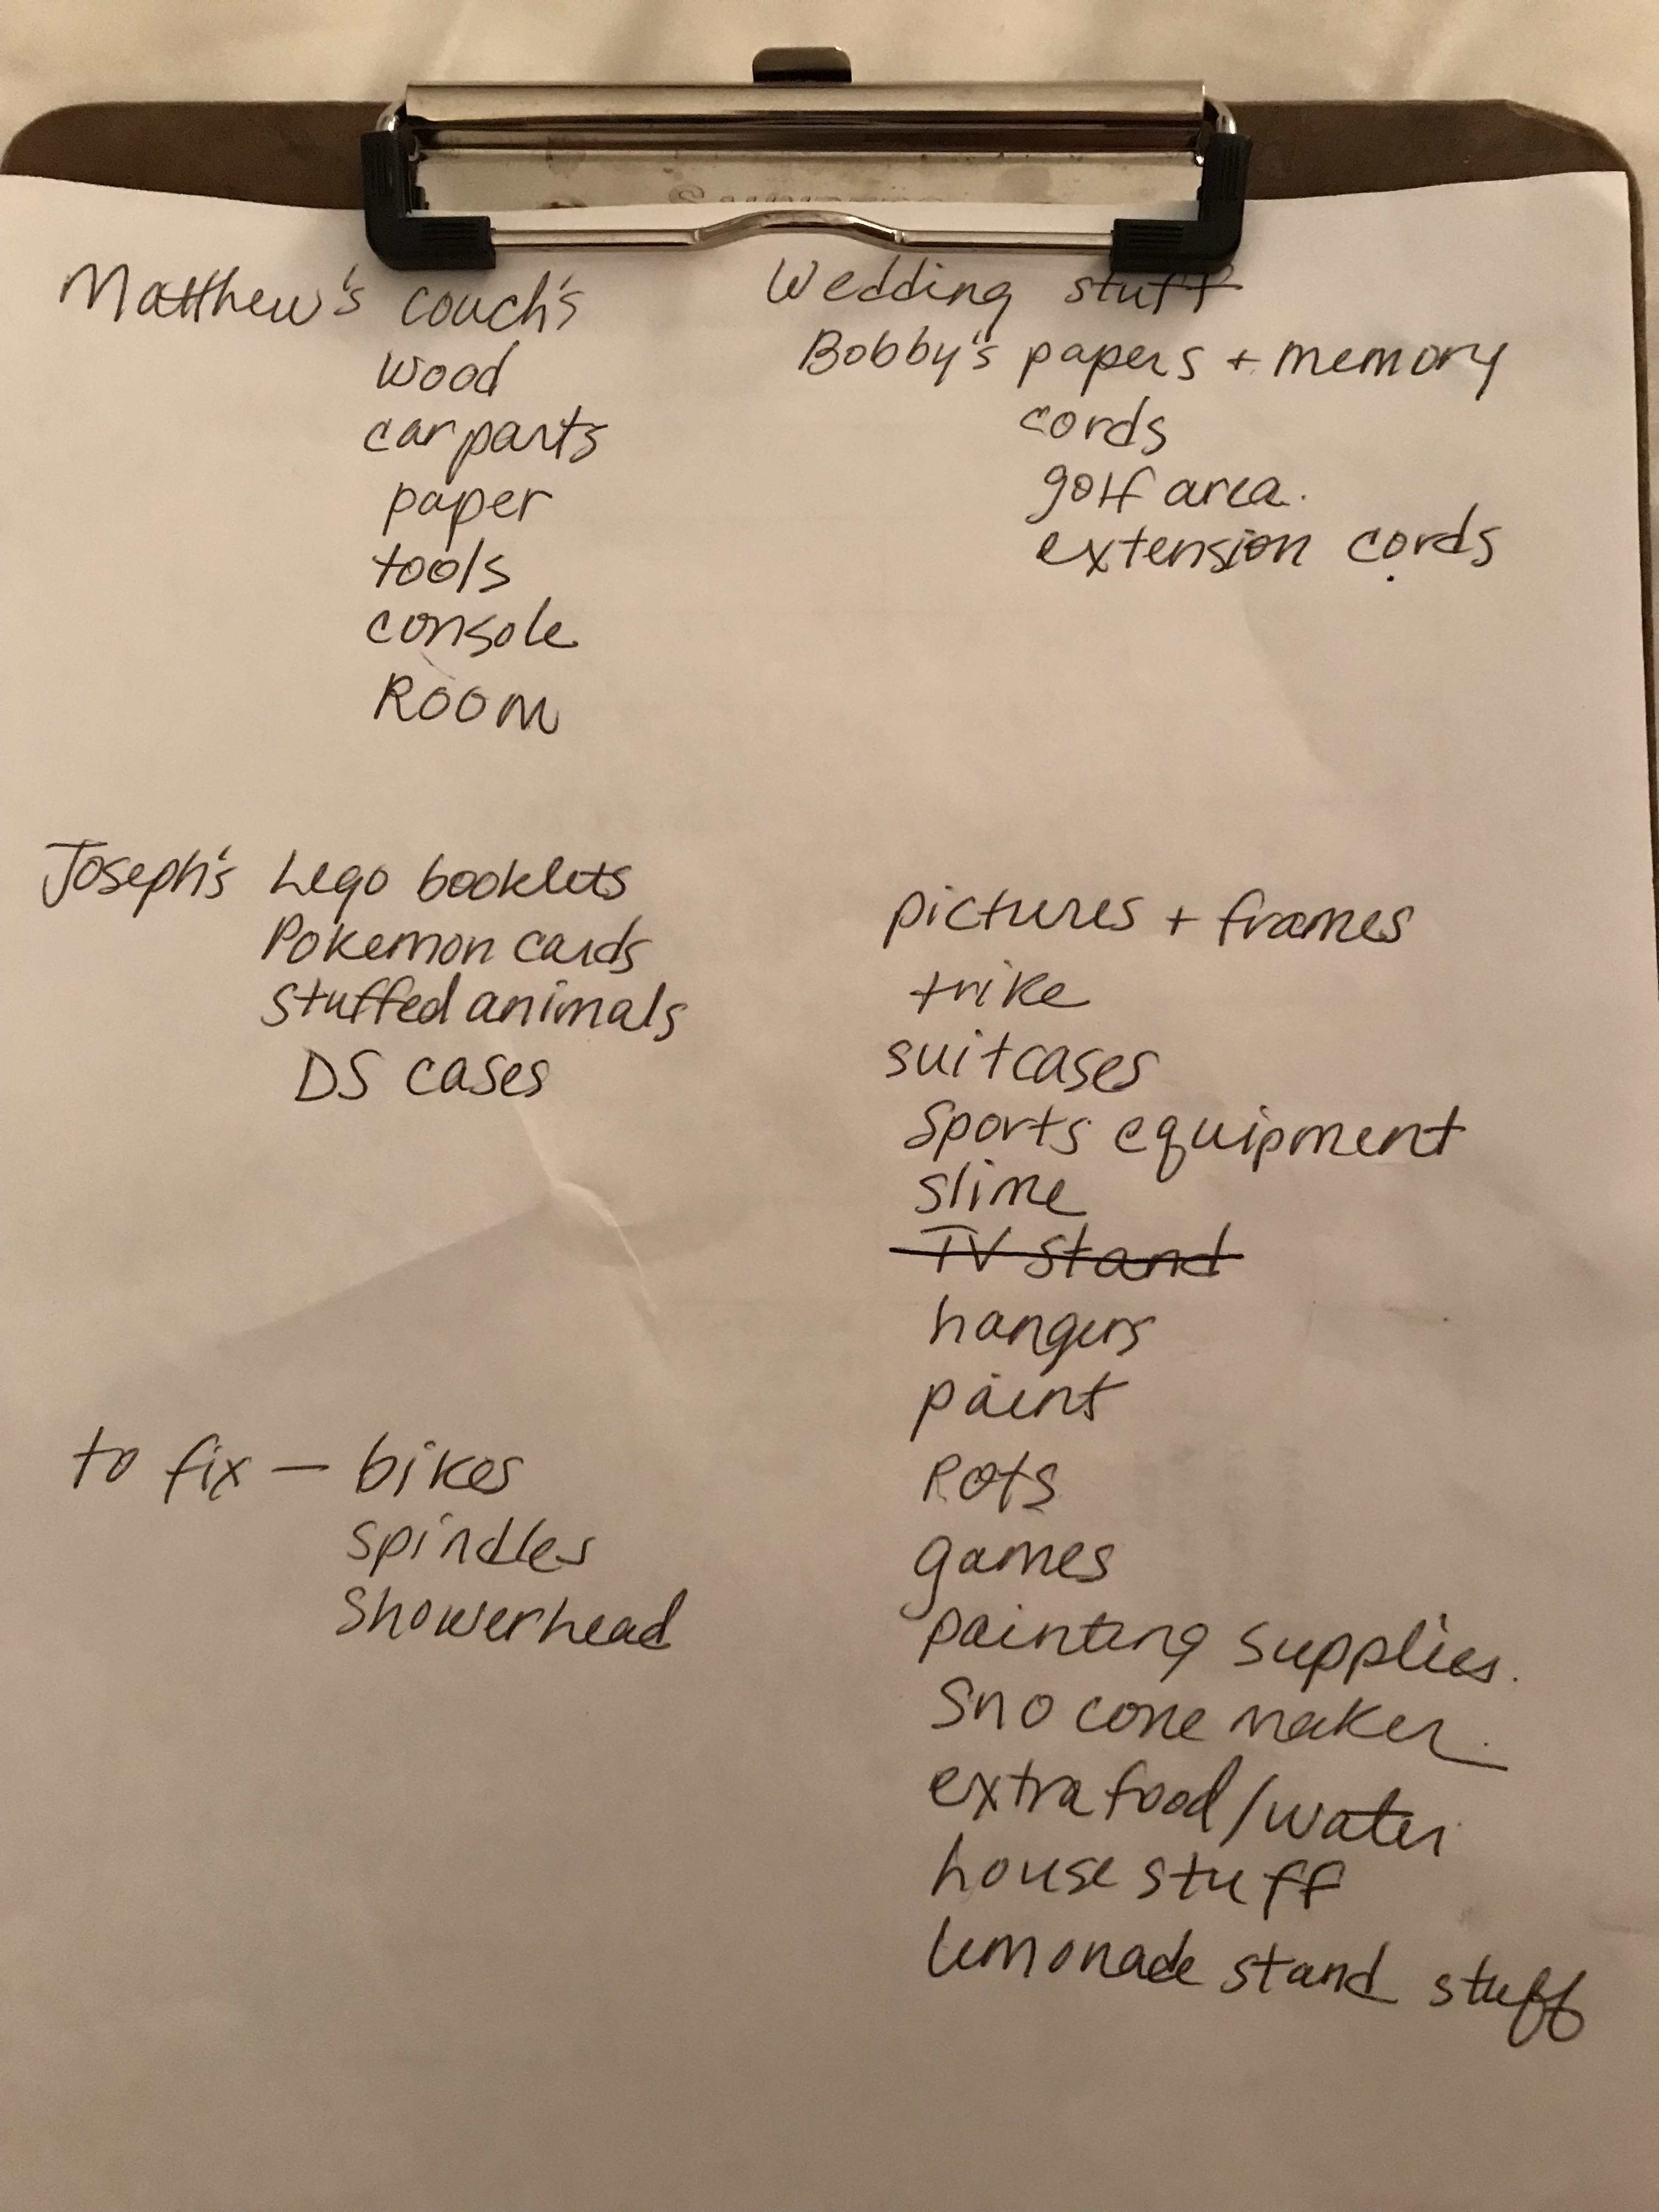 Matthew's couch's
wood
car parts
paper
tools
console
Room
Wedding stuff
Bobby's papers + memory
cords
golf area.
extension cords
Joseph's Lego booklets
Pokemon cards
stuffed animals
DS cases
pictures + frames
trike
suitcases
Sports equipment
slime
TV stand
hangers
paint
Pots
games
painting supplies.
Sno cone maker.
extra food/water
house stuff
lemonade stand stuff
to fix — bikes
spindles
showerhead